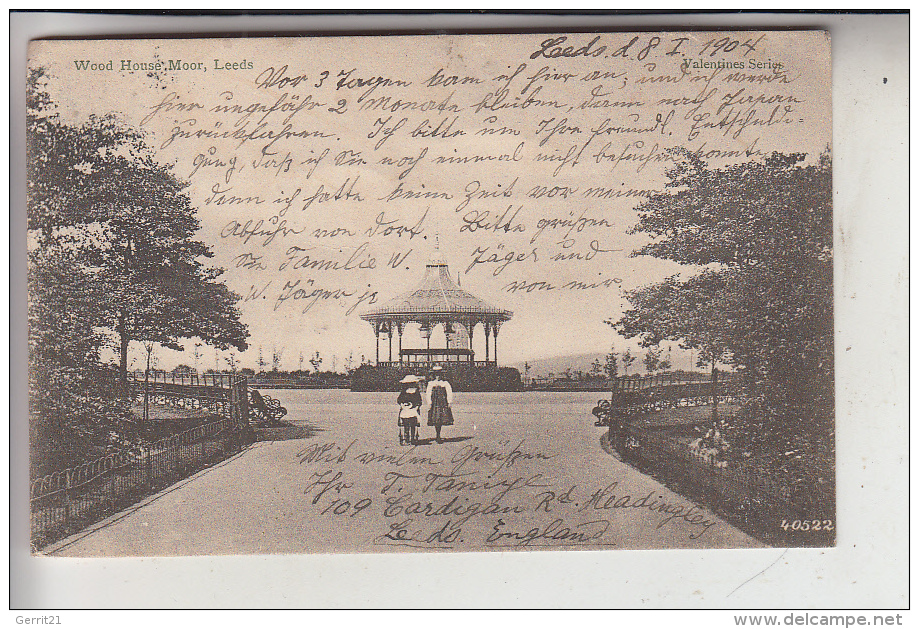 Wood House Moor, Leeds
Leeds. d. 8 I. 1904
Valentines Series
Vor 3 Tagen kam ich hier an, und ich werde
hier ungefähr 2 Monate bleiben, dann nach Japan
zurückfahren. Ich bitte um Ihre freundl. Entschuldi-
gung, daß ich Sie noch einmal nicht besuchen konnte
denn ich hatte keine Zeit vor meiner
Abfuhr von dort. Bitte grüßen
Sie Familie W. Jäger und
W. Jäger jr von mir
Mit vielen Grüßen
Ihr T. Taniye
109 Cardigan Rd. Headingley
Leeds. England
40522
Gerrit21
delcampe.net